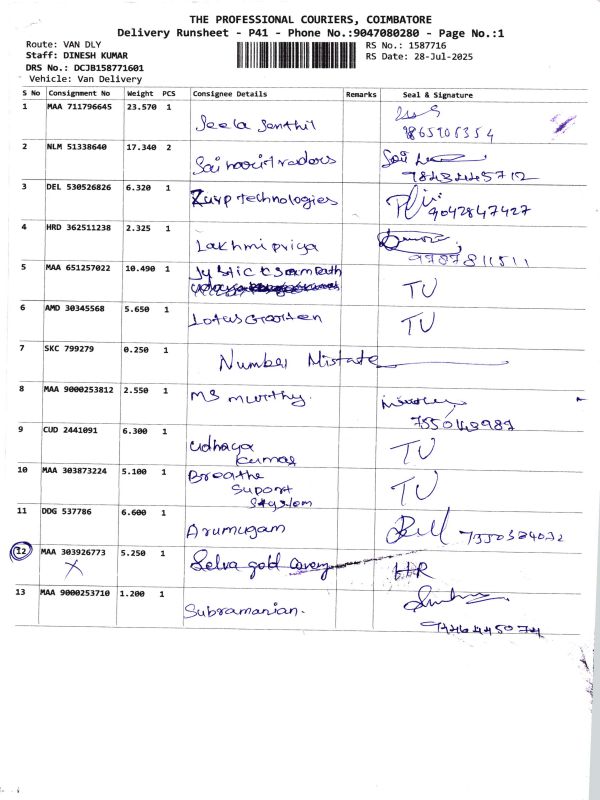 THE PROFESSIONAL COURIERS, COIMBATORE
Delivery Runsheet - P41 - Phone No.:9047080280 - Page No.:1
Route: VAN DLY
RS No.: 1587716
Staff: DINESH KUMAR
RS Date: 28-Jul-2025
DRS No.: DCJB158771601
Vehicle: Van Delivery
S No Consignment No Weight PCS Consignee Details Remarks Seal & Signature
1 MAA 711796645 23.570 1
Seela Senthil
9865906354
2 NLM 51338640 17.340 2
Sai
3 DEL 530526826 6.320 1
Zurp Technologies 9042847427
4 HRD 362511238 2.325 1
Lakhmi priya
9787811511
5 MAA 651257022 10.490 1
TU
6 AMD 30345568 5.650 1
Lotus TU
7 SKC 799279 0.250 1
Number Mistate
8 MAA 9000253812 2.550 1
MS Murthy.
9 CUD 2441091 6.300 1
Udhaya TU
Kumar
10 MAA 303873224 5.100 1
Breathe TU
Suport
11 DDG 537786 6.600 1
Arumugam
12 MAA 303926773 5.250 1
X Selva gold HR
13 MAA 9000253710 1.200 1
Subramanian.